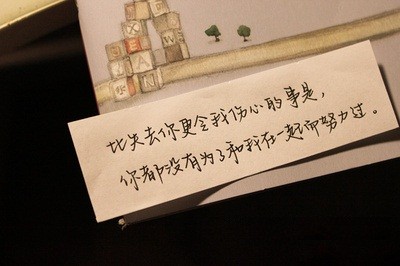 比失去你更令我伤心的事是，
你都没有为了和我在一起而努力过。